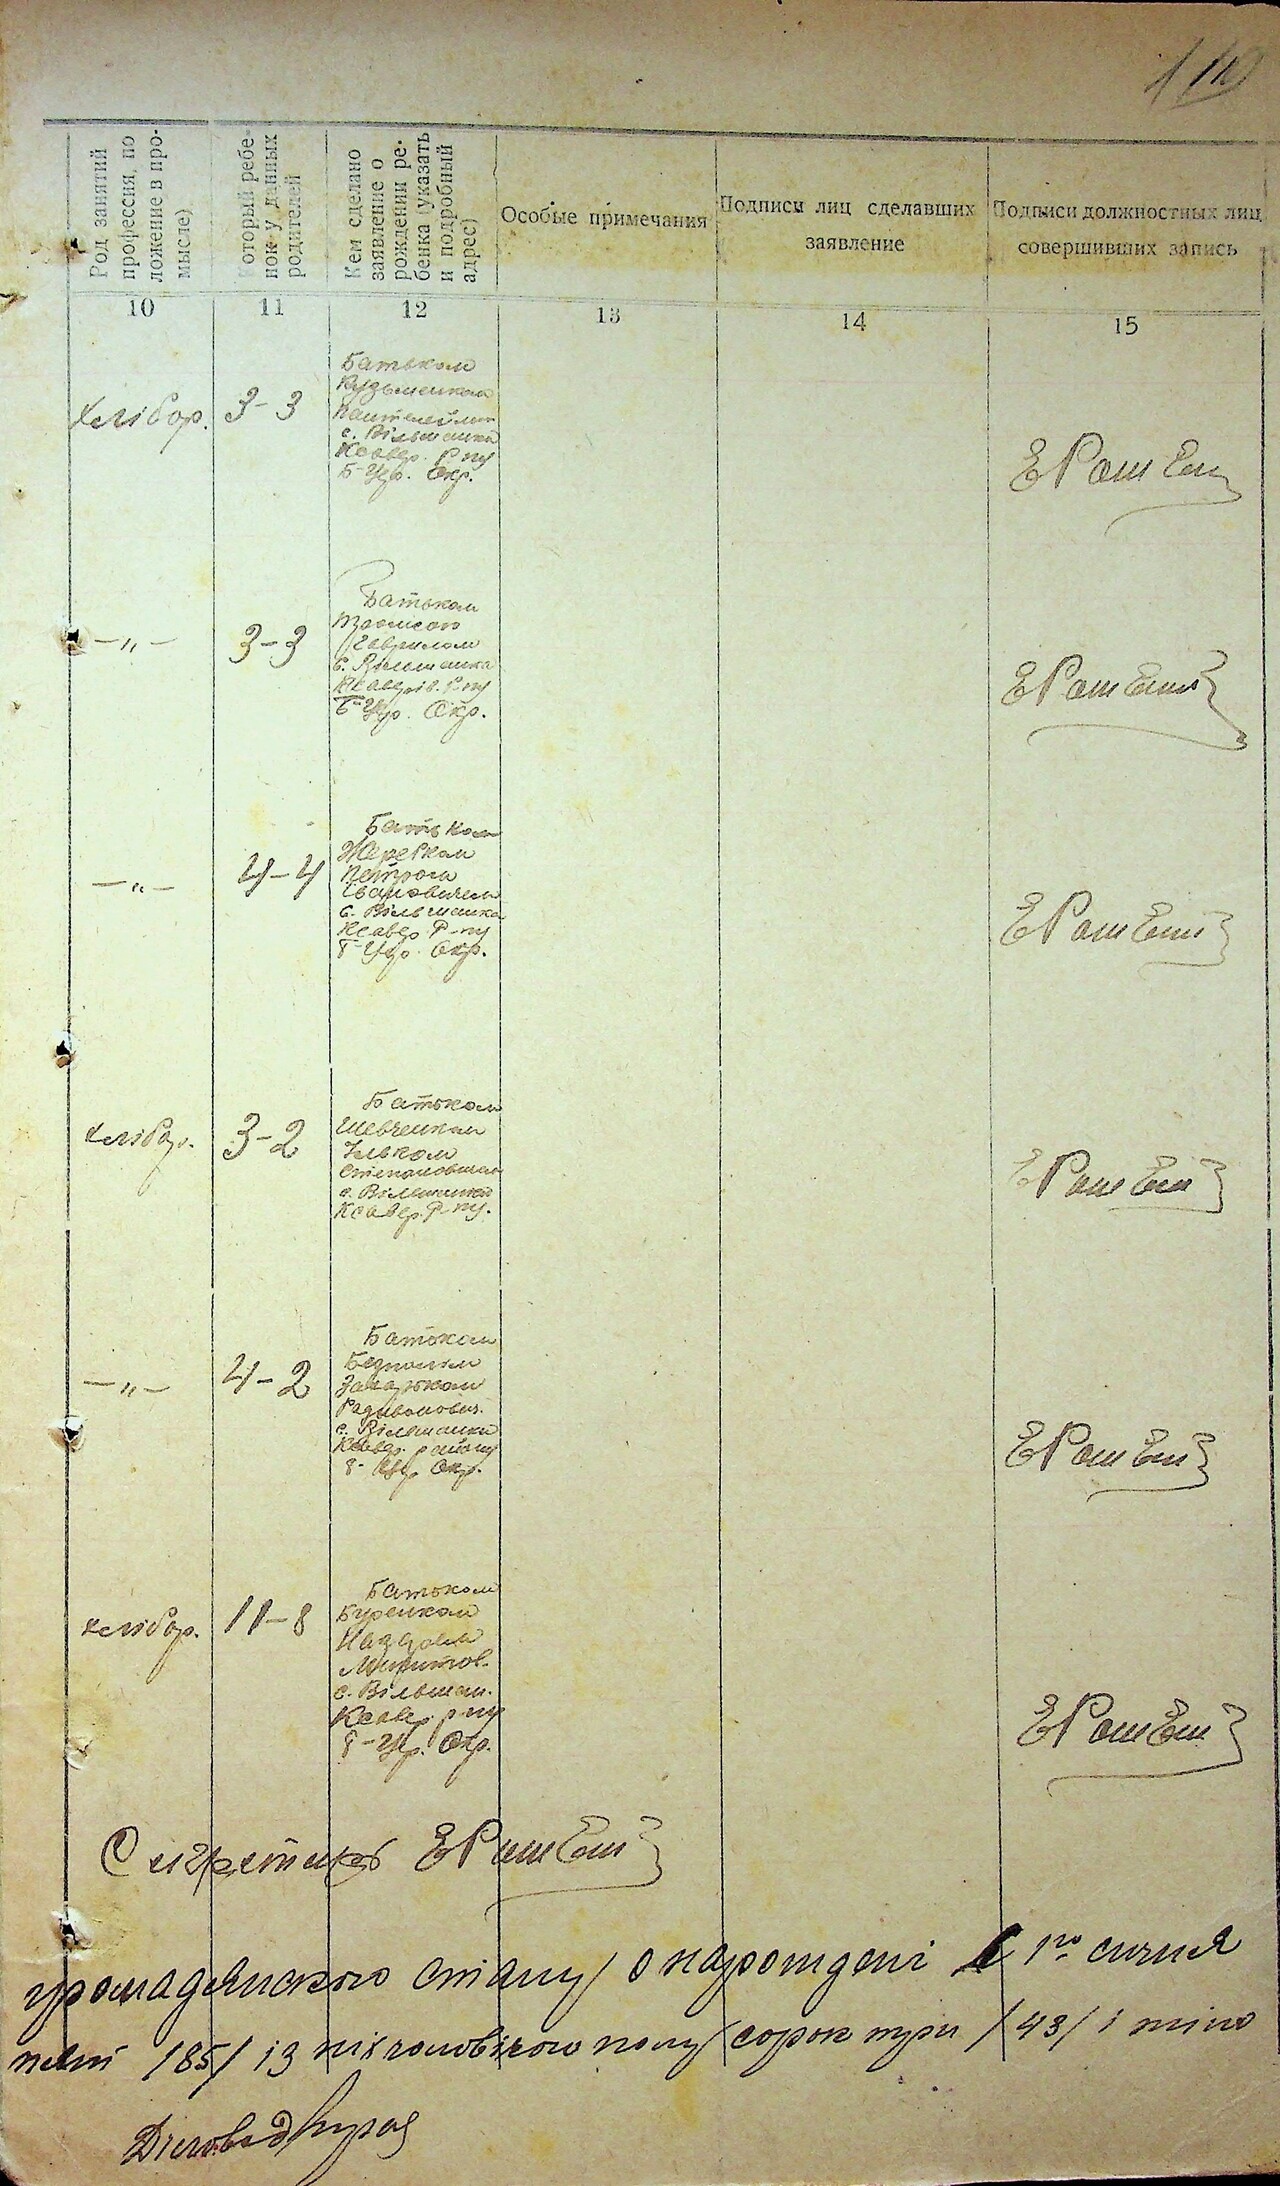 110
Род занятий
профессия, по
ложение в про-
мысле)
Который ребе-
нок у данных
родителей
Кем сделано
заявление о
рождении ре-
бенка (указать
и подробный
адрес)
Особые примечания
Подписи лиц сделавших
заявление
Подписи должностных лиц
совершивших запись
10
11
12
13
14
15
хлібор.
3-3
Батьком
Кузьменком
Пантелеймон
с. Вільшанка
Ксавер. Р-ну
Б-Цер. Окр.
— „ —
3-3
Батьком
Гаврилом
с. Вільшанка
Ксаверів. Р-ну
Б-Цер. Окр.
— „ —
4-4
Батьком
Жеребком
Петром
Івановичем
с. Вільшанка
Ксавер. Р-ну
Б-Цер. Окр.
хлібор.
3-2
Батьком
Шевченком
Ільком
Степановичем
с. Вільшанка
Ксавер. Р-ну.
— „ —
4-2
Батьком
Захарком
Радивонович.
с. Вільшанка
Ксавер. району
Б-Цер. Окр.
хлібор.
11-8
Батьком
Буренком
Назаром
Микитов.
с. Вільшан.
Ксавер. р-ну
Б-Цер. Окр.
Секретарь
громадянського стану о народжені 1го січня
/85/ із них чоловічого полу сорок три /43/ і жіно
Діловод